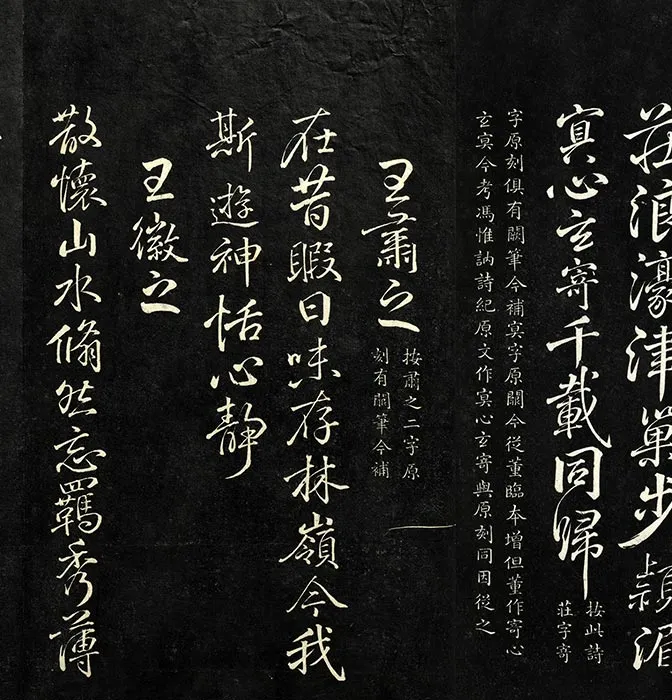 莊浪濠津巢步潁湄
冥心玄寄千載同歸
按此詩
莊字寄
字原刻俱有闕筆今補冥字原闕今從董臨本增但董作寄心
玄冥今考馮惟訥詩紀原文作冥心玄寄與原刻同因從之
王肅之
按肅之二字原
刻有闕筆今補
在昔暇日味存林嶺今我
斯遊神恬心靜
王徽之
散懷山水翛然忘羈秀薄